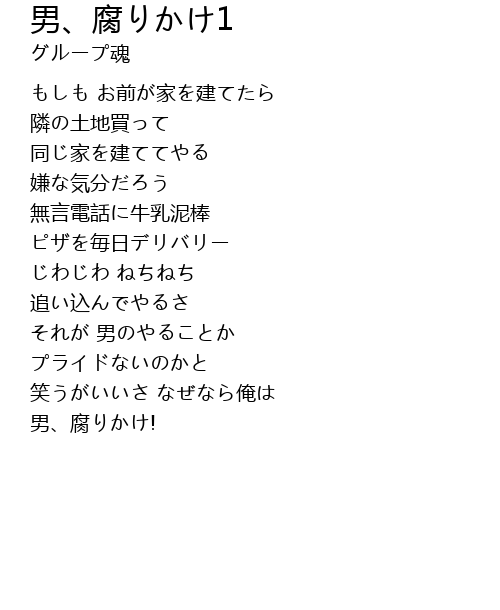 男、腐りかけ1
グループ魂
もしも お前が家を建てたら
隣の土地買って
同じ家を建ててやる
嫌な気分だろう
無言電話に牛乳泥棒
ピザを毎日デリバリー
じわじわ ねちねち
追い込んでやるさ
それが 男のやることか
プライドないのかと
笑うがいいさ なぜなら俺は
男、腐りかけ!